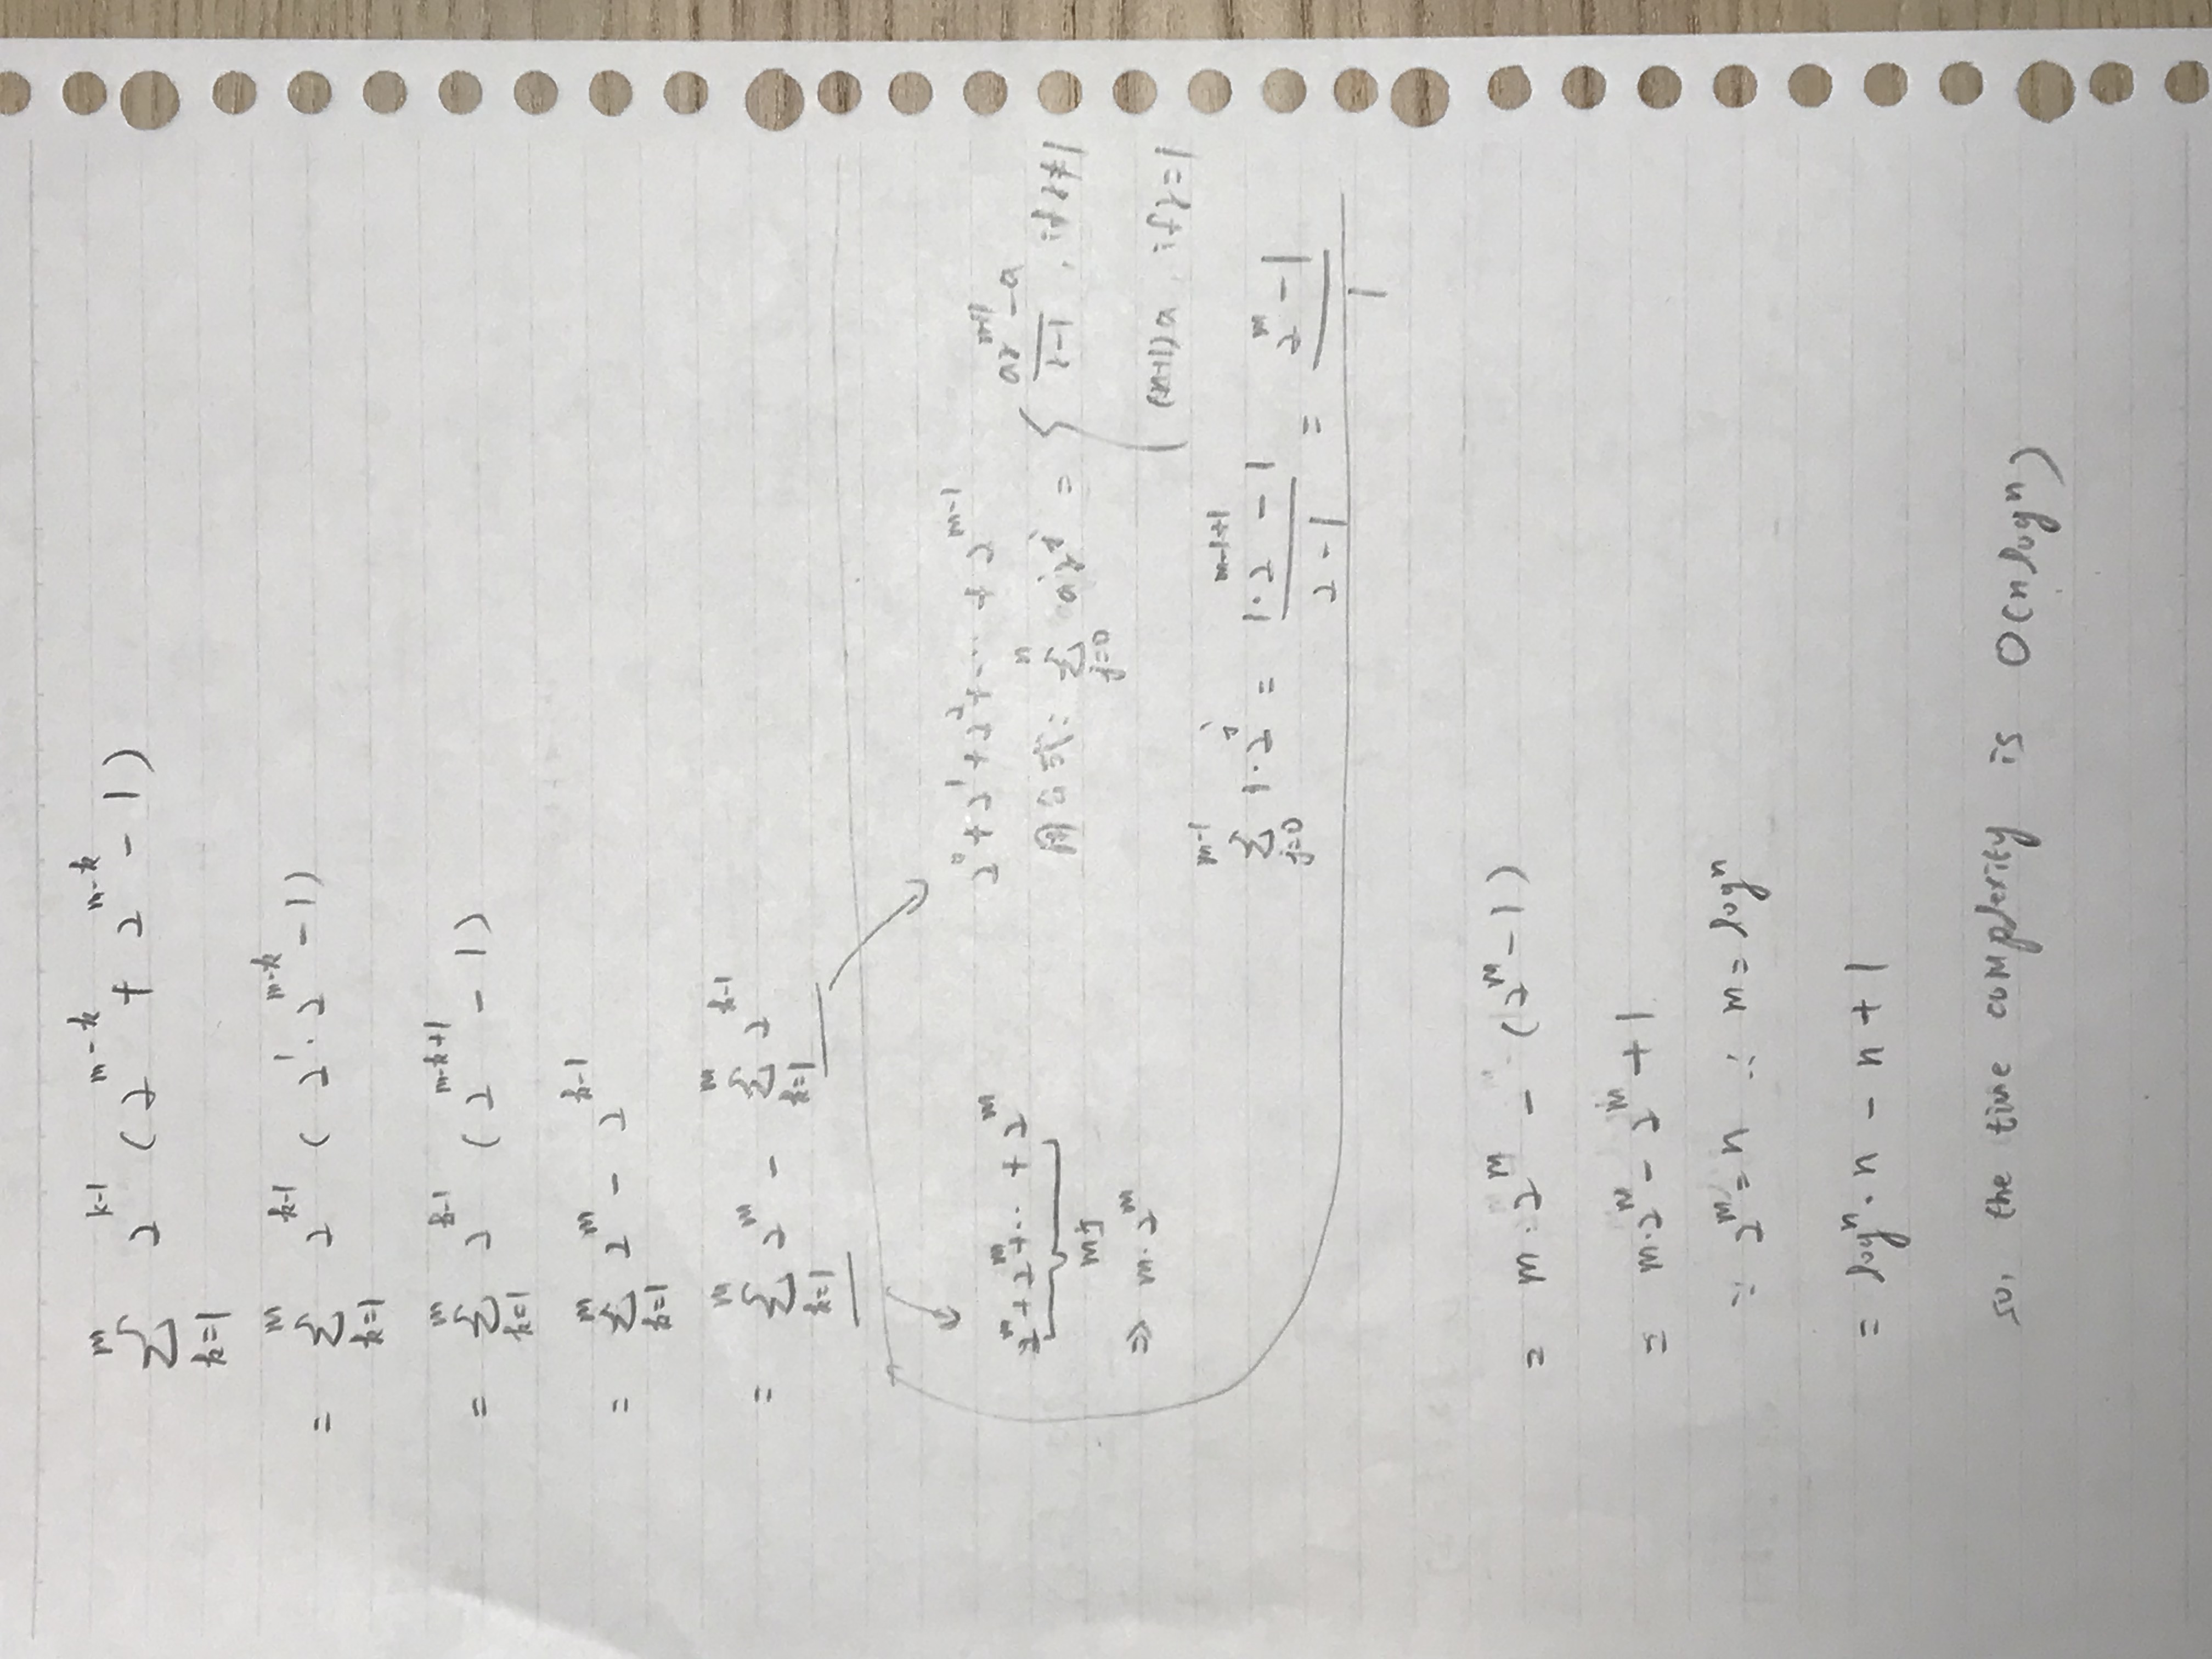 $\sum_{k=1}^{m} 2^{k-1} (2^{m-k} + 2^{m-k} - 1)$
$= \sum_{k=1}^{m} 2^{k-1} (2^1 \cdot 2^{m-k} - 1)$
$= \sum_{k=1}^{m} 2^{k-1} (2^{m-k+1} - 1)$
$= \sum_{k=1}^{m} 2^m - 2^{k-1}$
$= \sum_{k=1}^{m} 2^m - \sum_{k=1}^{m} 2^{k-1}$
$2^m + 2^m + \cdots + 2^m$
m
$\Rightarrow m \cdot 2^m$
$2^0 + 2^1 + 2^2 + \cdots + 2^{m-1}$
用公式: $\sum_{j=0}^{n} ar^j = \begin{cases} \frac{ar^{n+1} - a}{r-1}, if r \neq 1 \\ (n+1)a, if r = 1 \end{cases}$
$\sum_{j=0}^{m-1} 1 \cdot 2^j = \frac{1 \cdot 2^{m-1+1} - 1}{2-1} = \frac{2^m - 1}{1}$
$= m \cdot 2^m - (2^m - 1)$
$= m \cdot 2^m - 2^m + 1$
$\because 2^m = n \therefore m = log^n$
$= log^n \cdot n - n + 1$
so, the time complexity is $O(n log^n)$